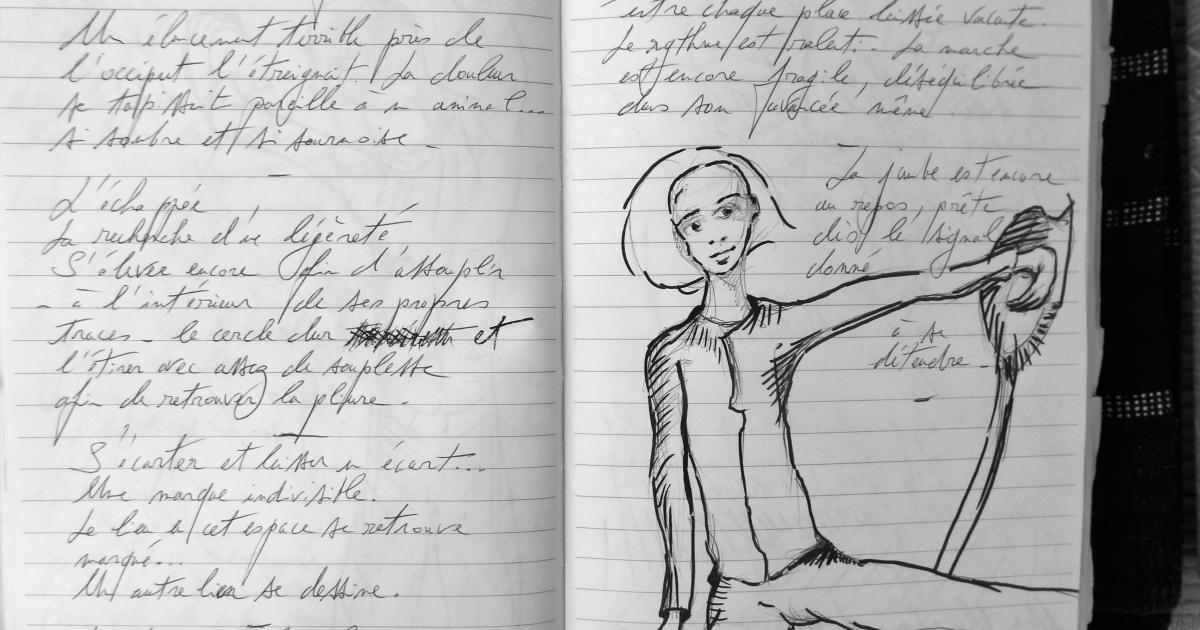 Un élancement terrible près de
l'occiput l'étreignait. La douleur
se tapissait pareille à un animal...
si sombre et si sournoise -
L'échappée,
La recherche d'une légèreté,
S'élever encore afin d'assouplir
- à l'intérieur de ses propres
traces - le cercle dur et
l'étirer avec assez de souplesse
afin de retrouver la pliure.
S'écarter et laisser un écart...
Une marque indivisible.
Le lieu cet espace se retrouve
marqué...
Un autre lien se dessine.
entre chaque place laissée vacante.
Le rythme est ralenti - La marche
est encore fragile, déséquilibrée
dans son avancée même.
La jambe est encore
au repos, prête
dès le signal
donné
à se
détendre -